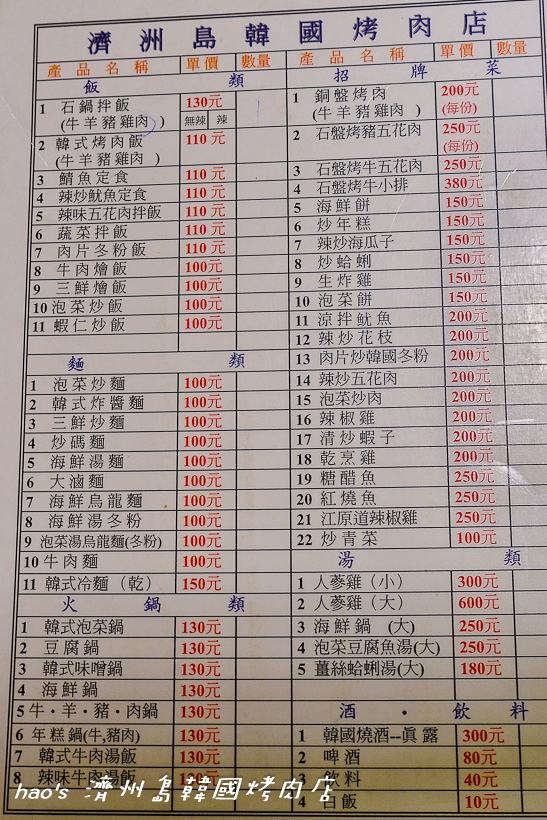 濟洲島韓國烤肉店
產品名稱 單價 數量
飯類
1 石鍋拌飯 130元
(牛羊豬雞肉) 無辣 辣
2 韓式烤肉飯 110元
(牛羊豬雞肉)
3 鯖魚定食 110元
4 辣炒魷魚定食 110元
5 辣味五花肉拌飯 110元
6 蔬菜拌飯 110元
7 肉片冬粉飯 110元
8 牛肉燴飯 100元
9 三鮮燴飯 100元
10 泡菜炒飯 100元
11 蝦仁炒飯 100元
麵類
1 泡菜炒麵 100元
2 韓式炸醬麵 100元
3 三鮮炒麵 100元
4 炒碼麵 100元
5 海鮮湯麵 100元
6 大滷麵 100元
7 海鮮烏龍麵 100元
8 海鮮湯冬粉 100元
9 泡菜湯烏龍麵(冬粉) 100元
10 牛肉麵 100元
11 韓式冷麵（乾） 150元
火鍋類
1 韓式泡菜鍋 130元
2 豆腐鍋 130元
3 韓式味噌鍋 130元
4 海鮮鍋 130元
5 牛·羊·豬·肉鍋 130元
6 年糕鍋(牛,豬肉) 130元
7 韓式牛肉湯飯 130元
8 辣味牛肉湯飯
產品名稱 單價 數量
招牌菜
1 銅盤烤肉 200元
(牛羊豬雞肉) (每份)
2 石盤烤豬五花肉 250元
(每份)
3 石盤烤牛五花肉 250元
4 石盤烤牛小排 380元
5 海鮮餅 150元
6 炒年糕 150元
7 辣炒海瓜子 150元
8 炒蛤蜊 150元
9 生炸雞 150元
10 泡菜餅 150元
11 涼拌魷魚 200元
12 辣炒花枝 200元
13 肉片炒韓國冬粉 200元
14 辣炒五花肉 200元
15 泡菜炒肉 200元
16 辣椒雞 200元
17 清炒蝦子 200元
18 乾烹雞 200元
19 糖醋魚 250元
20 紅燒魚 250元
21 江原道辣椒雞 250元
22 炒青菜 100元
湯類
1 人蔘雞（小） 300元
2 人蔘雞（大） 600元
3 海鮮鍋 (大) 250元
4 泡菜豆腐魚湯(大) 250元
5 薑絲蛤蜊湯(大) 180元
酒·飲料
1 韓國燒酒--眞露 300元
2 啤酒 80元
3 飲料 40元
4 白飯 10元
hao's 濟州島韓國烤肉店